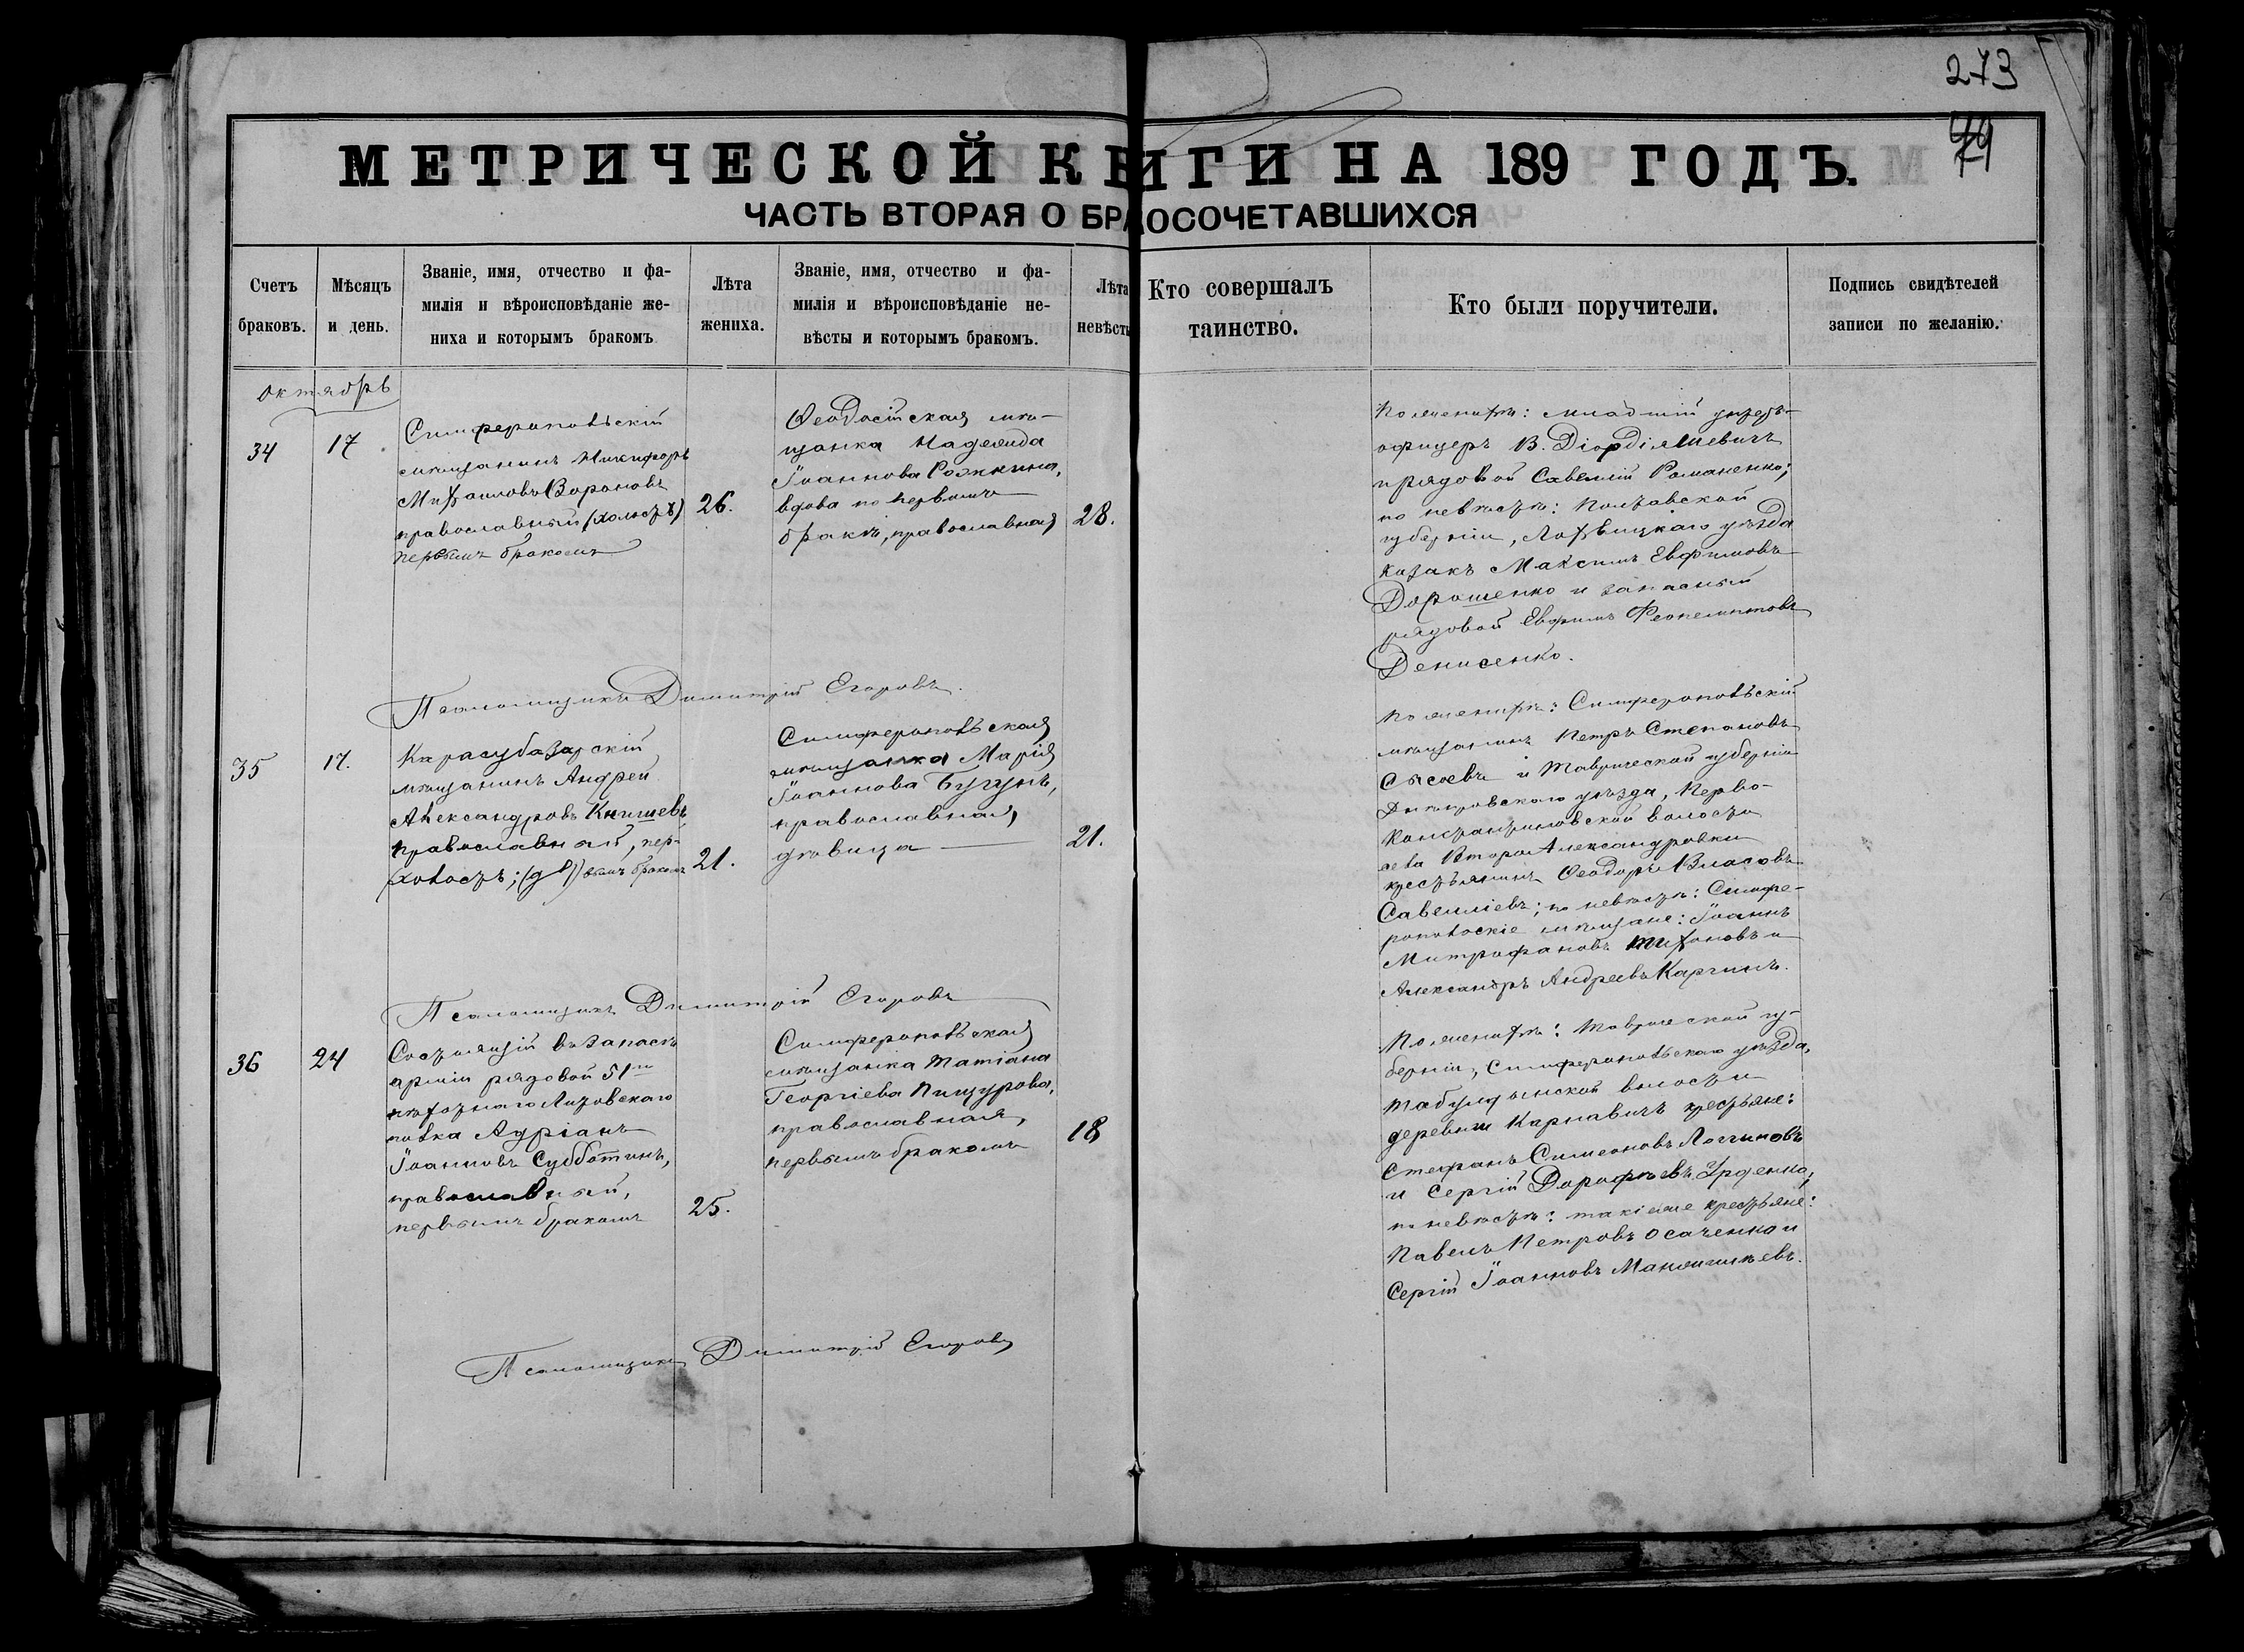 273
79
МЕТРИЧЕСКОЙ КНИГИ НА 189 ГОДЪ.
ЧАСТЬ ВТОРАЯ О БРАОСОЧЕТАВШИХСЯ
Счетъ
браковъ.
Мѣсяцъ
и день.
Званіе, имя, отчество и фа-
милія и вѣроисповѣданіе же-
ниха и которымъ бракомъ
Лѣта
жениха.
Званіе, имя, отчество и фа-
милія и вѣроисповѣданіе не-
вѣсты и которымъ бракомъ.
Лѣта
невѣсты
Кто совершалъ
таинство.
Кто были поручители.
Подпись свидѣтелей
записи по желанію.
Октябрь
34
17
Симферопольскій
мѣщанинъ Никифоръ
Михаиловъ Вороновъ
православный (холостъ)
первымъ бракомъ
26.
Ѳеодосійская мѣ-
щанка Надежда
Іоаннова Рожкина,
вдова по первомъ
бракѣ, православная
28.
По женихѣ: младшій унтеръ-
офицеръ В. Діордіяшевичъ
рядовой Савелій Романенко;
по невѣстѣ: Полтавской
губерніи, Лохвицкаго уѣзда
казакъ Максимъ Евфимовъ
Дорошенко и запасный
рядовой Евфимъ Феопемптовъ
Денисенко.
Псаломщикъ Димитрій Егоровъ.
35
17.
Карасубазарскій
мѣщанинъ Андрей
Александровъ Книшевъ
православный, пер-
холостъ; вымъ бракомъ
21.
Симферопольская
мѣщанка Марія
Іоаннова Бугунъ,
православная,
дѣвица
21.
По женихѣ: Симферопольскій
мѣщанинъ Петръ Степановъ
Сысоевъ и Таврической губерніи
Днѣпровскаго уѣзда, Перво-
Константиновской волости
села Второй Александровки
крестьянинъ Ѳеодоръ Власовъ
Савелліевъ; по невѣстѣ: Симфе-
ропольскіе мѣщане: Іоаннъ
Митрофановъ Тихоновъ и
Александръ Андреевъ Каргинъ.
Псаломщикъ Димитрій Егоровъ
36
24
Состоящій въ запасѣ
арміи рядовой 51го
пѣхотнаго Литовскаго
полка Адріанъ
Іоанновъ Субботинъ,
православный,
первымъ бракомъ
25.
Симферопольская
мѣщанка Татіана
Георгіева Пищурова,
православная,
первымъ бракомъ
18
По женихѣ: Таврической гу-
берніи, Симферопольскаго уѣзда,
Табулдинской волости
деревни Карнавичъ крестьяне:
Стефанъ Симеоновъ Логгиновъ
и Сергій Дорофѣевъ
по невѣстѣ: такіеже крестьяне:
Павелъ Петровъ Осаченко и
Сергій Іоанновъ
Псаломщикъ Димитрій Егоровъ